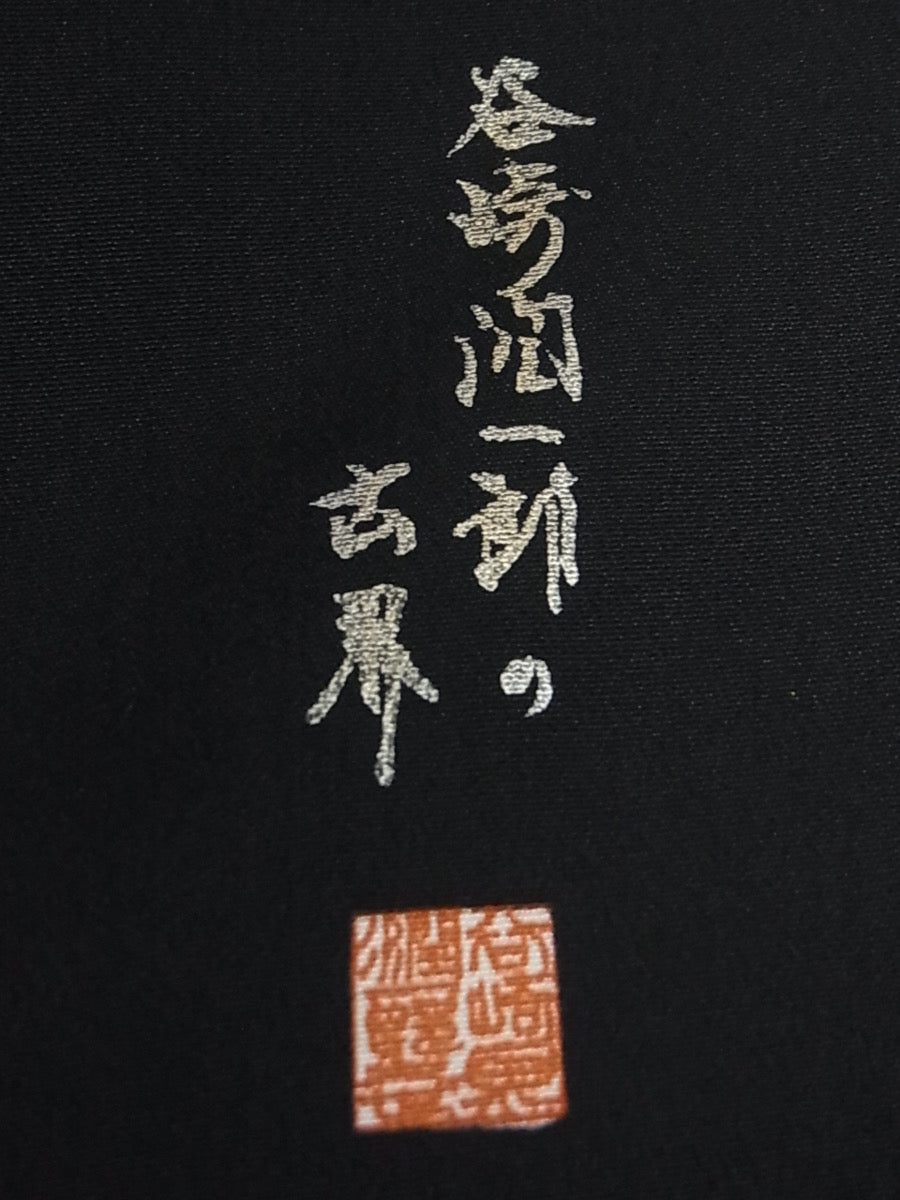 谷崎潤一郎の
世界